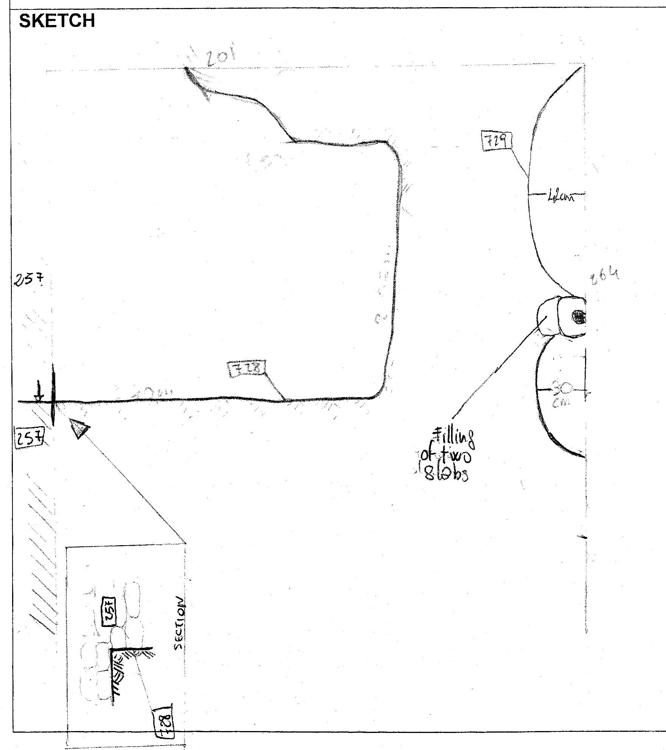 SKETCH
201
729
42cm
264
257
728
30
cm
257
Filling
of two
slabs
257
SECTION
728